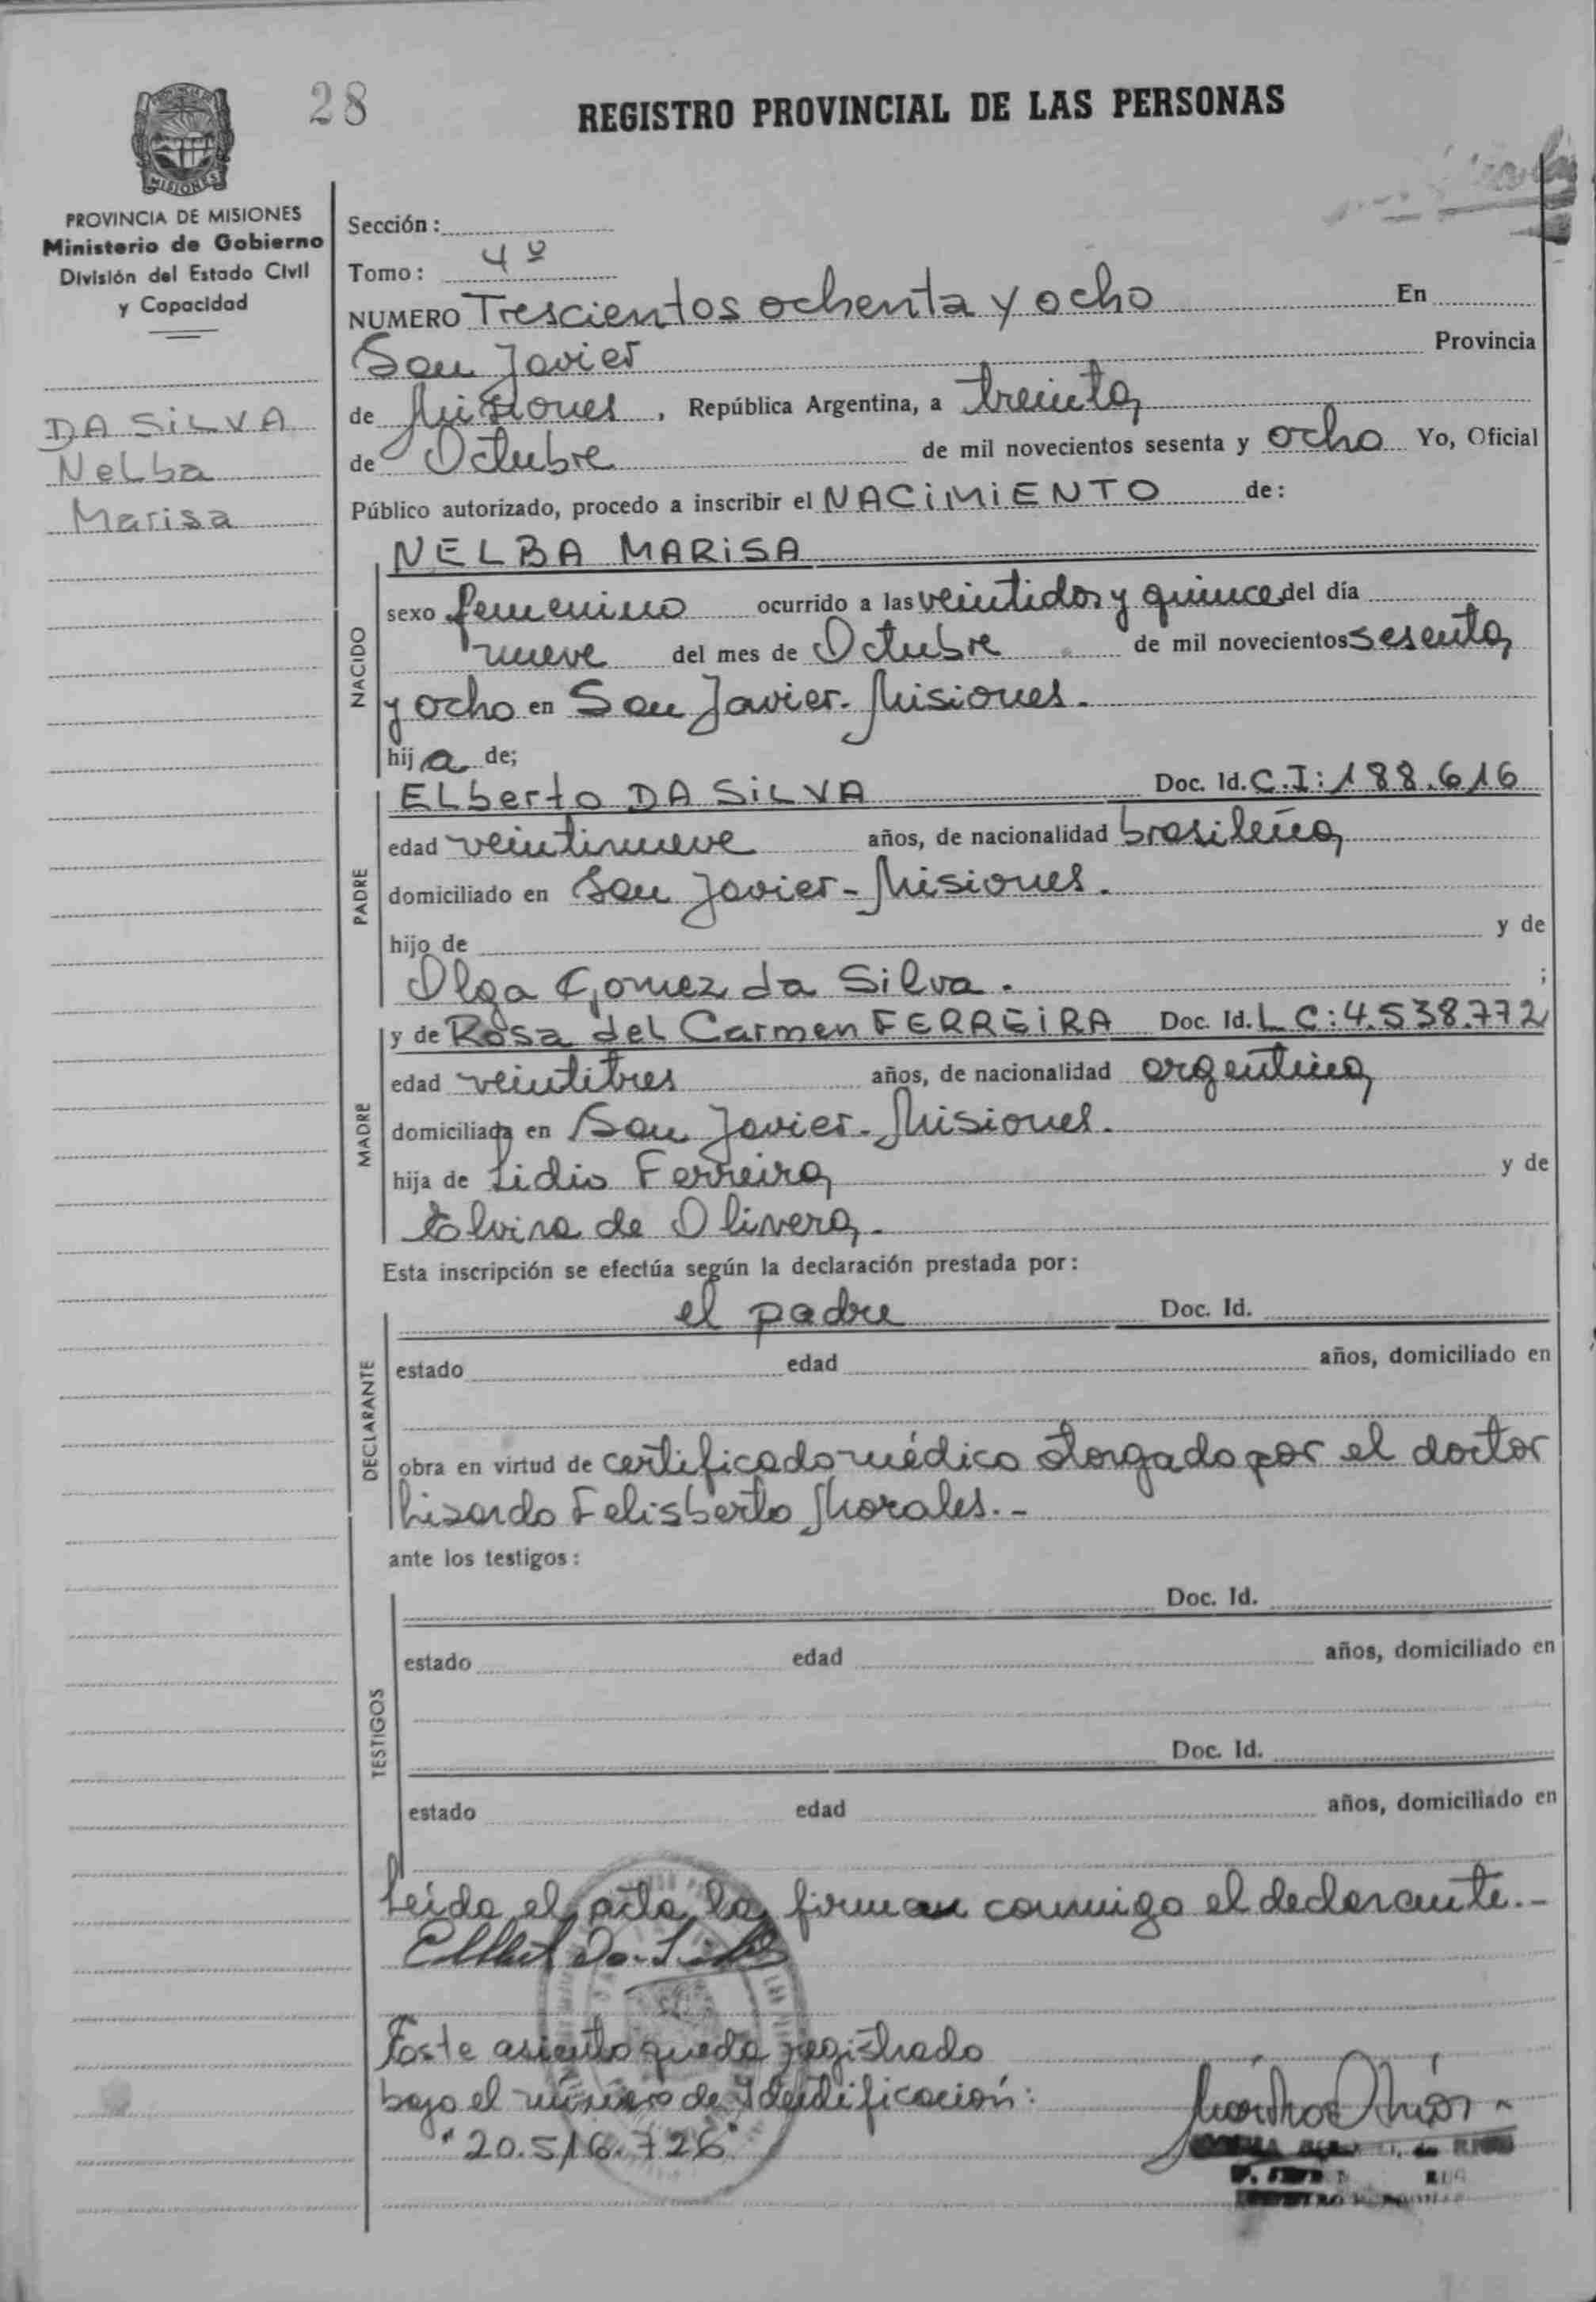 28
REGISTRO PROVINCIAL DE LAS PERSONAS
MISIONES
PROVINCIA DE MISIONES
Ministerio de Gobierno
División del Estado Civil
y Capacidad
DA SILVA
Nelba
Marisa
Sección:
Tomo: 4º
NUMERO Trescientos ochenta y ocho En
San Javier Provincia
de Misiones, República Argentina, a treinta
de Octubre de mil novecientos sesenta y ocho Yo, Oficial
Público autorizado, procedo a inscribir el NACIMIENTO de:
NACIDO
NELBA MARISA
sexo femenino ocurrido a las veintidos y quince del día
nueve del mes de Octubre de mil novecientos sesenta
y ocho en San Javier-Misiones.
hija de;
PADRE
ELberto DA SILVA Doc. Id. C.I: 188.616
edad veintinueve años, de nacionalidad brasileña
domiciliado en San Javier-Misiones.
hijo de y de
Olga Gomez da Silva. ;
MADRE
y de Rosa del Carmen FERREIRA Doc. Id. L C: 4.538.772
edad veintitres años, de nacionalidad argentina
domiciliada en San Javier-Misiones.
hija de Lidio Ferreira y de
Elvira de Olivera.
Esta inscripción se efectúa según la declaración prestada por:
DECLARANTE
el padre Doc. Id.
estado edad años, domiciliado en
obra en virtud de certificado médico otorgado por el doctor
Lisardo Felisberto Morales.-
ante los testigos:
TESTIGOS
Doc. Id.
estado edad años, domiciliado en
Doc. Id.
estado edad años, domiciliado en
Leida el acta la firman conmigo el declarante.-
Este asiento queda registrado
bajo el número de Identificación:
"20.516.726"